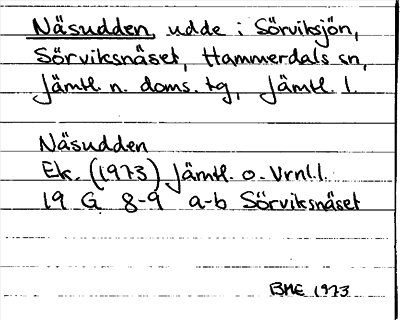 Näsudden, udde i Sörviksjön,
Sörviksnäset, Hammerdals sn,
Jämtl. n. doms. tg, Jämtl. l.
Näsudden
Ek. (1973) Jämtl. o. Vrnl.l.
19 G 8-9 a-b Sörviksnäset
BME 1973